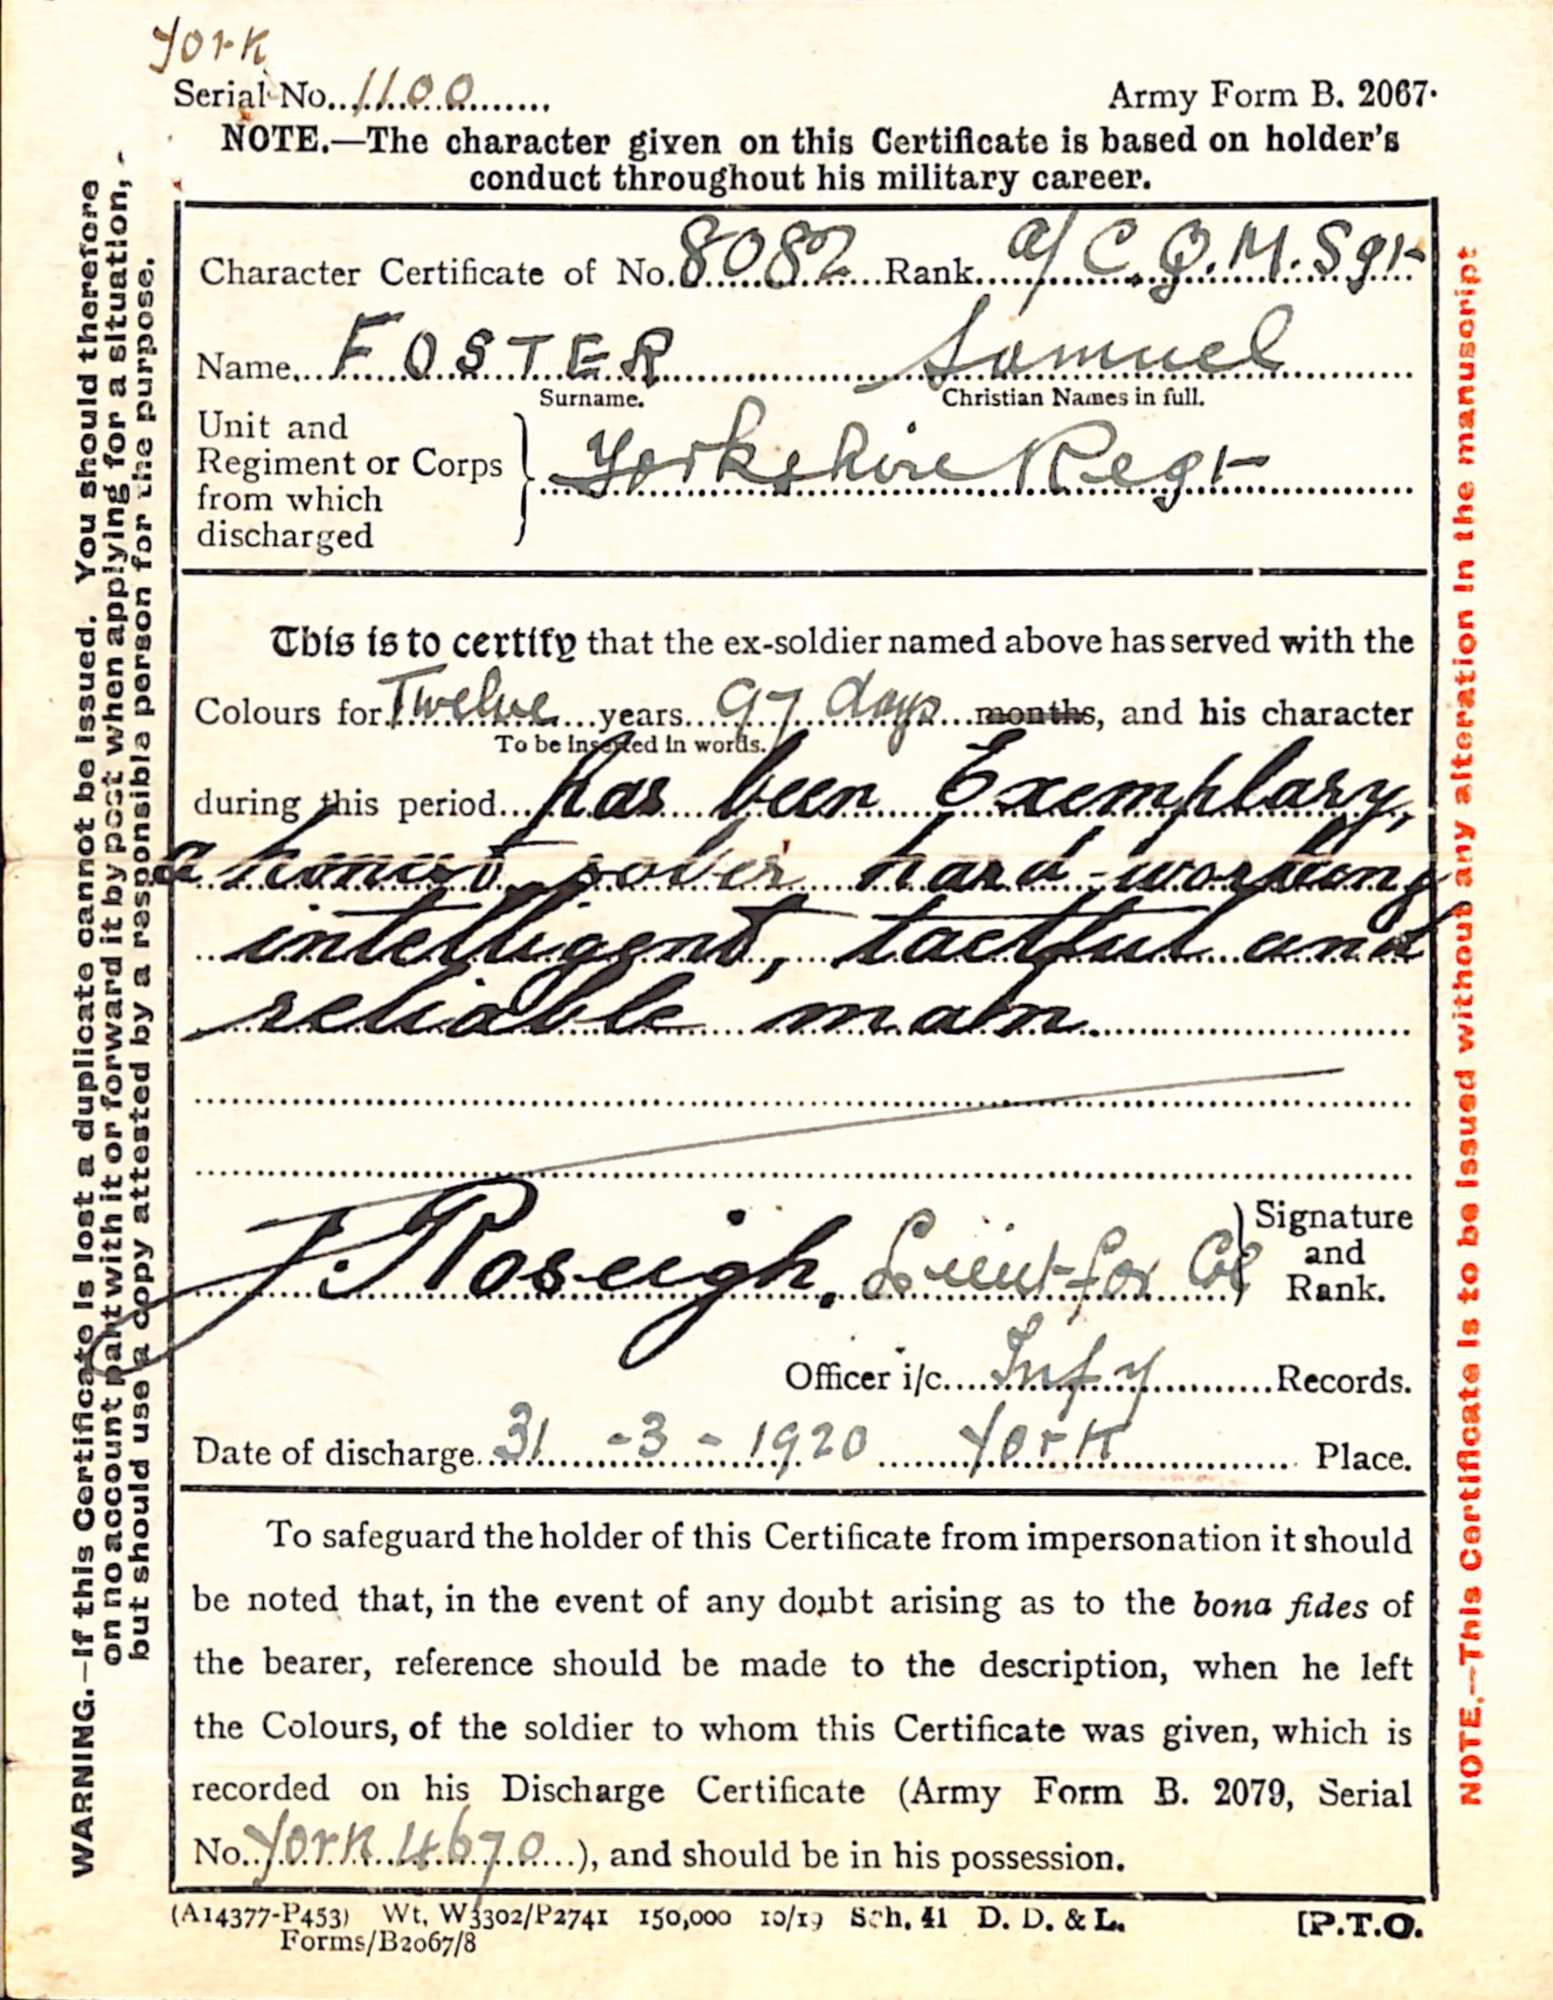 York
Serial No. 1100 Army Form B. 2067.
NOTE.—The character given on this Certificate is based on holder's
conduct throughout his military career.
Character Certificate of No. 8082 Rank a/ C.Q.M.Sgt
Name FOSTER Samuel
Surname. Christian Names in full.
Unit and
Regiment or Corps
from which
discharged
Yorkshire Regt
This is to certify that the ex-soldier named above has served with the
Colours for Twelve years 97 days months, and his character
To be inserted in words.
during this period has been Exemplary,
a honest, sober hard-working
intelligent, tactful and
reliable man.
J. Roseigh, Lieut for Col
Signature
and
Rank.
Officer i/c Infy Records.
Date of discharge 31 - 3 - 1920 York Place.
To safeguard the holder of this Certificate from impersonation it should
be noted that, in the event of any doubt arising as to the bona fides of
the bearer, reference should be made to the description, when he left
the Colours, of the soldier to whom this Certificate was given, which is
recorded on his Discharge Certificate (Army Form B. 2079, Serial
No. York 4670), and should be in his possession.
(A14377-P453) Wt. W3302/P2741 150,000 10/19 Sch. 41 D. D. & L.
Forms/B2067/8
[P.T.O.
WARNING.—If this Certificate is lost a duplicate cannot be issued. You should therefore
on no account part with it or forward it by post when applying for a situation,
but should use a copy attested by a responsible person for the purpose.
NOTE.—This Certificate is to be issued without any alteration in the manuscript